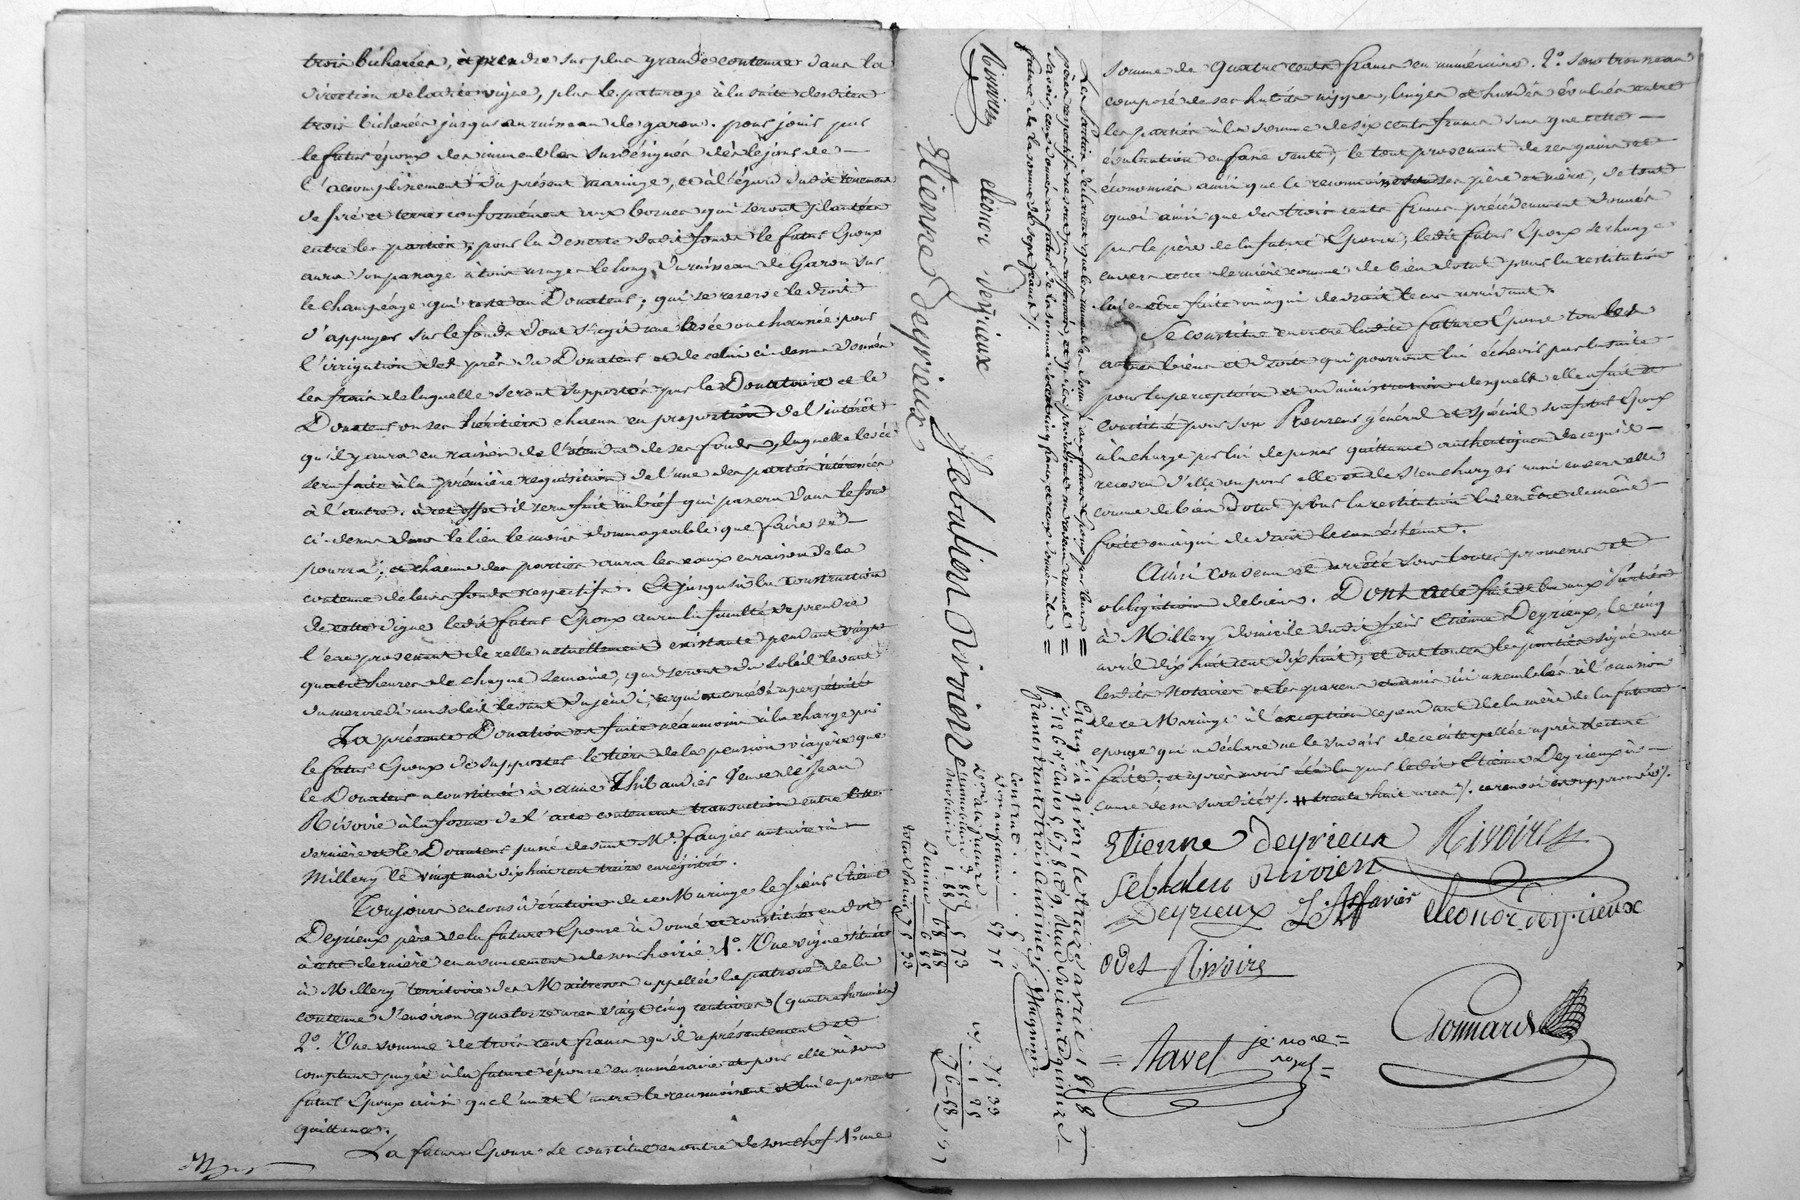 trois bicherées, à prendre sur plus grande contenue dans la
direction de la dite vigne, plus le paturage à la suite desdites
trois bicherées jusqu'au ruisseau de garon. pour jouir par
le futur époux des immeubles sus désignés dès le jour de
l'accomplissement du présent mariage, et à l'égard dudit tènement
de pré et terres conformément aux bornes qui seront plantées
entre les parties; pour la deserte dudit fonds le futur Epoux
aura son passage à tout usage le long du ruisseau de Garon sur
le champéage qui reste au Donateur; qui se reserve le droit
d'appuyer sur le fonds dont s'agit une levée ou chaussée pour
l'irrigation des prés du Donateur et de celui ci dessus donné
les frais de laquelle seront supportés par le Donataire et le
Donateur ou ses héritiers chacun en proportion de l'intérêt
qu'il y aura en raison de l'étendue de ses fonds, laquelle levée
sera faite à la première requisition de l'une des parties intéressées
à l'autre. à cet effet il sera fait un bief qui passera dans le fond
ci-dessus dans le lieu le moins dommageable que faire se
pourra; et chacune des parties aura les eaux en raison de la
contenue de leurs fonds respectifs. Et jusqu'à la construction
de cette digue ledit futur Epoux aura la faculté de prendre
l'eau provenant de celle actuellement existante pendant vingt
quatre heures de chaque semaine, qui seront du soleil levant
du mercredi au soleil levant du jeudi, ce qui est concédé à perpétuité
La présente Donation est faite néanmoins à la charge par
le futur Epoux de supporter le tiers de la pension viagère que
le Donateur a constituée à anne Thibaudier Veuve de Jean
Rivoire à la forme de l'acte contenant transaction entre cette
dernière et le Donateur passé devant Me. faugier notaire à
Millery le vingt mai dix huit cent treize enregistré.
Toujours en considération de ce Mariage le sieur Etienne
Deyrieux père de la future Epouse a donné et constitué en dot
à cette dernière en avancement de son hoirie 1°. Une vigne située
à Millery territoire des Maiteaux appellée la patroue de la
contenue d'environ quatorze ares vingt cinq centiares (quatre hommées)
2°. Une somme de trois cent francs qu'il a présentement et
comptant payée à la future épouse en numéraire et pour elle à son
futur Epoux ainsi que l'un et l'autre le reconnoissent et lui en passent
quittance.
La future Epouse se constitue en outre de son chef 1° une
Rivoire
eleonor deyrieux
Etienne Deyrieux
Sebastien Rivoire
Les Parties déclarent que les immeubles donnés aux futurs Epoux par leurs
pères respectifs ne sont pas affermés, et qu'ils produisent un revenu annuel
savoir, ceux donnés au futur de la somme de cent cinq francs, et ceux donnés à la
future de la somme de sept francs ./.
Enregistré à givors le treize avril 1818
f°. 126 v° cases 5, 6, 7, 8 & 9. reçu soixante quinze
francs trente trois centimes Magnin
Contrat . . . 5 "
Don au futur — 57 75
Don à la future
immobilier 3 85
mobilier 1 88
5 73
68 48
Dixième 6 85
total 75 33
75 33
1 25
76-58
somme de quatre cents francs en numéraire. 2°. Son trousseau
composé de ses habits nippes, linges et hardes évalués entre
les parties à la somme de six cents francs sans que cette
évaluation en fasse vente; le tout provenant de ses gains et
économies ainsi que le reconnoissent ses père et mère, de tout
quoi ainsi que des trois cents francs précédemment donnés
par le père de la future Epouse, ledit futur Epoux se charge
envers cette dernière comme de bien dotal pour la restitution
lui en être faite ou à qui de droit le cas arrivant.
Se constitue en outre ladite future Epouse tous les
autres biens et droits qui pourront lui échéoir par la suite
pour la perception et administration desquels elle en fait et
constitue pour son Procureur général et spécial son futur Epoux
à la charge par lui de passer quittance authentique de ce qu'il
recevra d'elle ou pour elle et de s'en charger aussi envers elle
comme de bien Dotal pour la restitution lui en être de même
faite ou à qui de droit le cas échéant.
Ainsi convenu et arrêté sous toutes promesses et
obligation de biens. Dont acte fait et lu aux Parties
à Millery domicile dudit sieur Etienne Deyrieux, le cinq
avril dix huit cent dix huit; et ont toutes les parties signé avec
lesdits Notaires et les parens et amis ici assemblés à l'occasion
de ce Mariage à l'exception cependant de la mère de la future
epouse qui a déclaré ne le savoir de ce interpellée après lecture
faite; et après avoir été lu par ledit Etienne Deyrieux à
cause de sa surdité ./. # trente huit ares ./. ce renvoi est approuvé ./.
Etienne Deyrieux Rivoire
Sebatien Rivoire
Deyrieux eleonor deyrieux
Odet Rivoire
= Navel